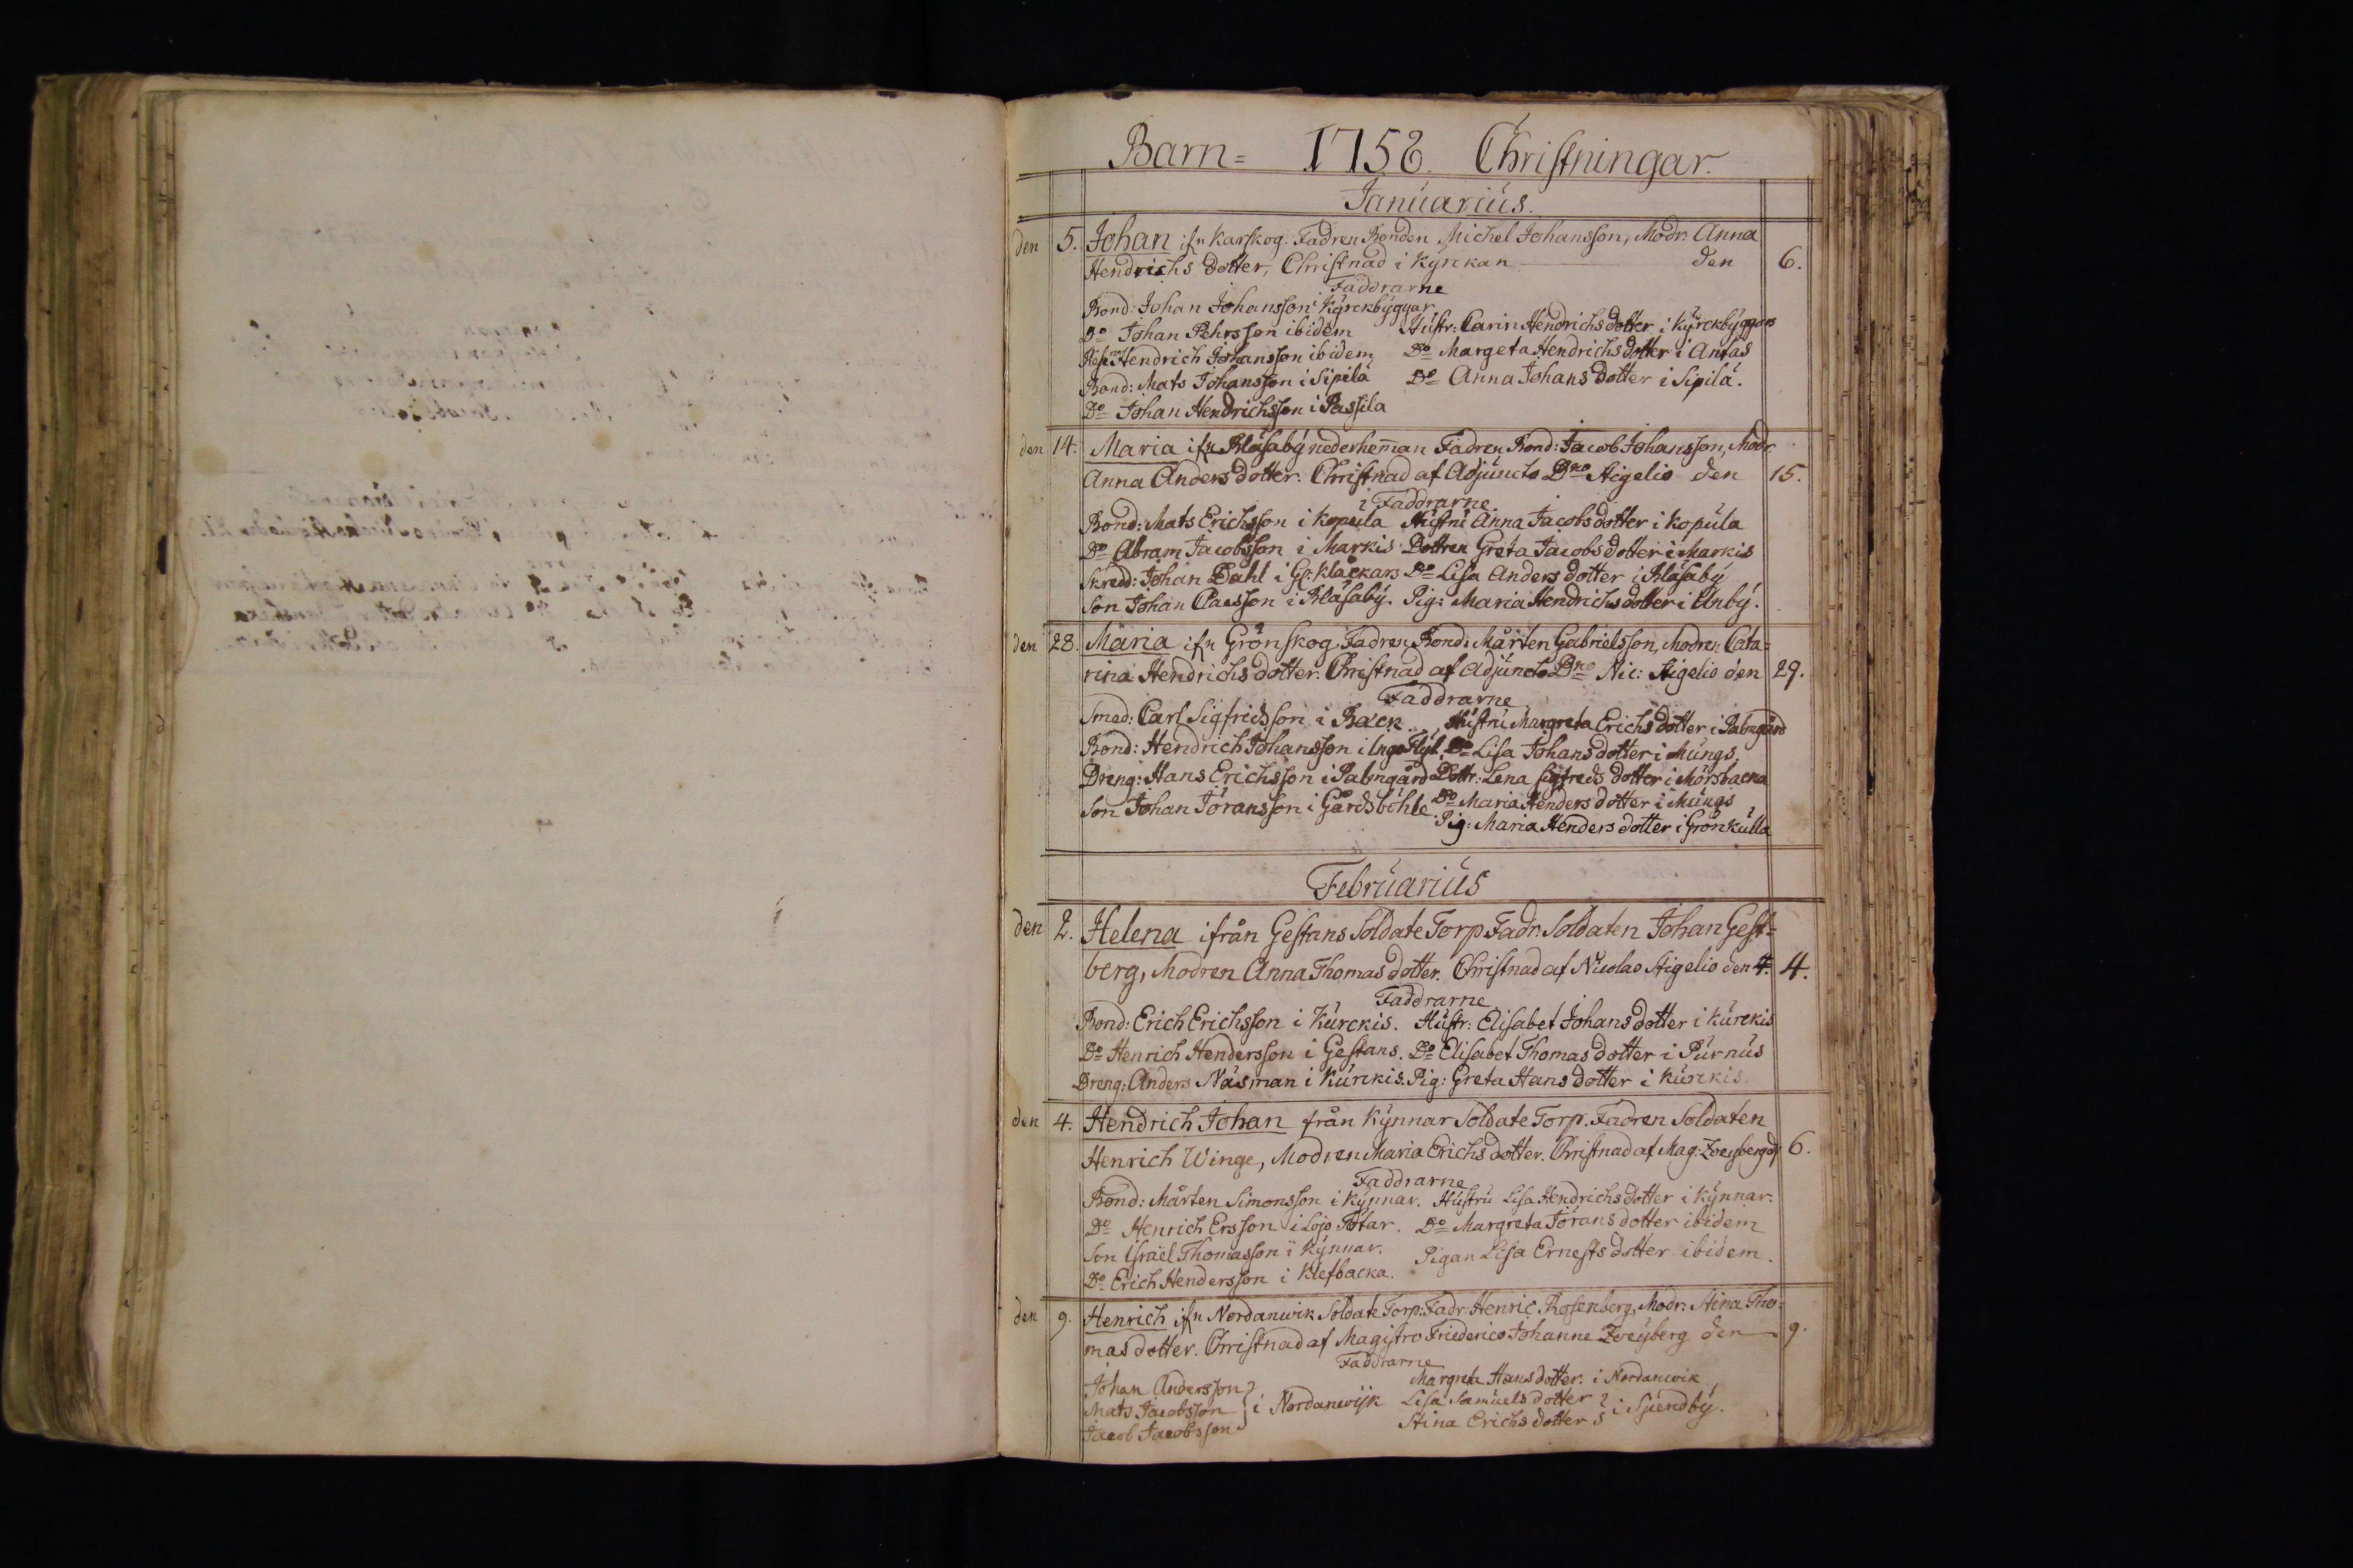 Barn= 1758. Christningar.
Januarius.
den 5. Johan ifn Karskog. Fadren Bonden Michel Johansson, Modr. Anna
Hendrichs dotter, Christnad i Kyrckan den 6.
Faddrarne
Bond: Johan Johansson i Kyrckbyggar
Do Johan Pehrsson ibidem Hustr: Carin Hendrichs dotter i Kyrckbyggars
Hendrich Johansson ibidem Do Margeta Hendrichs dotter i Antas
Bond: Mats Johansson i Sipilä Do Anna Johans dotter i Sipilä.
Do Johan Hendrichsson i Passila
den 14. Maria ifn Blåsaby nederhemman Fadren Bond: Jacob Johansson, Modr.
Anna Anders dotter. Christnad af Adjuncto Dno Aigelio den 15.
Faddrarne
Bond: Mats Erichsson i Kopula Hustru Anna Jacobs dotter i Kopula
Do Abram Jacobsson i Markis Dottren Greta Jacobs dotter i Markis
Skredd: Johan Dahl i Klåckars Do Lisa Anders dotter i Blåsaby
Son Johan Claesson i Blåsaby. Pig: Maria Hendrichs dotter i Unby.
den 28. Maria ifn Grönskog. Fadren Bond: Mårten Gabrielsson, Modren Cata=
rina Hendrichs dotter. Christnad af Adjuncto Dno Nic: Aigelio den 29.
Faddrarne
Smed: Carl Sigfridsson i Back. Hustru Margreta Erichs dotter i Palmgård
Bond: Hendrich Johansson i Do Lisa Johans dotter i Mungs
Dreng: Hans Erichsson i Palmgård Dottr: Lena Sigfreds dotter i Mörsbacka
Son Johan Jöransson i Gårdsböhle Do Maria Henders dotter i Mungs
Pig: Maria Henders dotter i Grönkulla
Februarius
den 2. Helena ifrån Gestans Soldate Torp Fadr: Soldaten Johan Gest=
berg, Modren Anna Thomas dotter. Christnad af Nicolao Aigelio den 4. 4.
Faddrarne
Bond: Erich Erichsson i Kurckis. Hustr: Elisabet Johans dotter i Kurckis
Do Henrich Hendersson i Gestans. Do Elisabet Thomas dotter i Purnus
Dreng: Anders Näsman i Kurckis. Pig: Greta Hans dotter i Kurckis.
den 4. Hendrich Johan från Kynnar Soldate Torp. Fadren Soldaten
Henrich Winge, Modren Maria Erichs dotter. Christnad af Mag: Zweyberg d. 6.
Faddrarne
Bond: Mårten Simonsson i Kynnar. Hustru Lisa Hendrichs dotter i Kynnar.
Do Henrich Ersson i Lojo Tötar. Do Margreta Jörans dotter ibidem
Son Israel Thomasson i Kynnar. Pigan Lisa Ernests dotter ibidem.
Do Erich Hendersson i Klefbacka.
den 9. Henrich ifn Nordanwik Soldate Torp: Fadr: Henric Rosenberg, Modr: Stina Tho=
mas dotter. Christnad af Magistro Friederico Johanne Zweyberg den 9.
Faddrarne
Johan Andersson Margreta Hans dotter i Nordanwik
Mats Jacobsson } i Nordanwijk Lisa Samuels dotter } i Sjundby.
Jacob Jacobsson Stina Erichs dotter